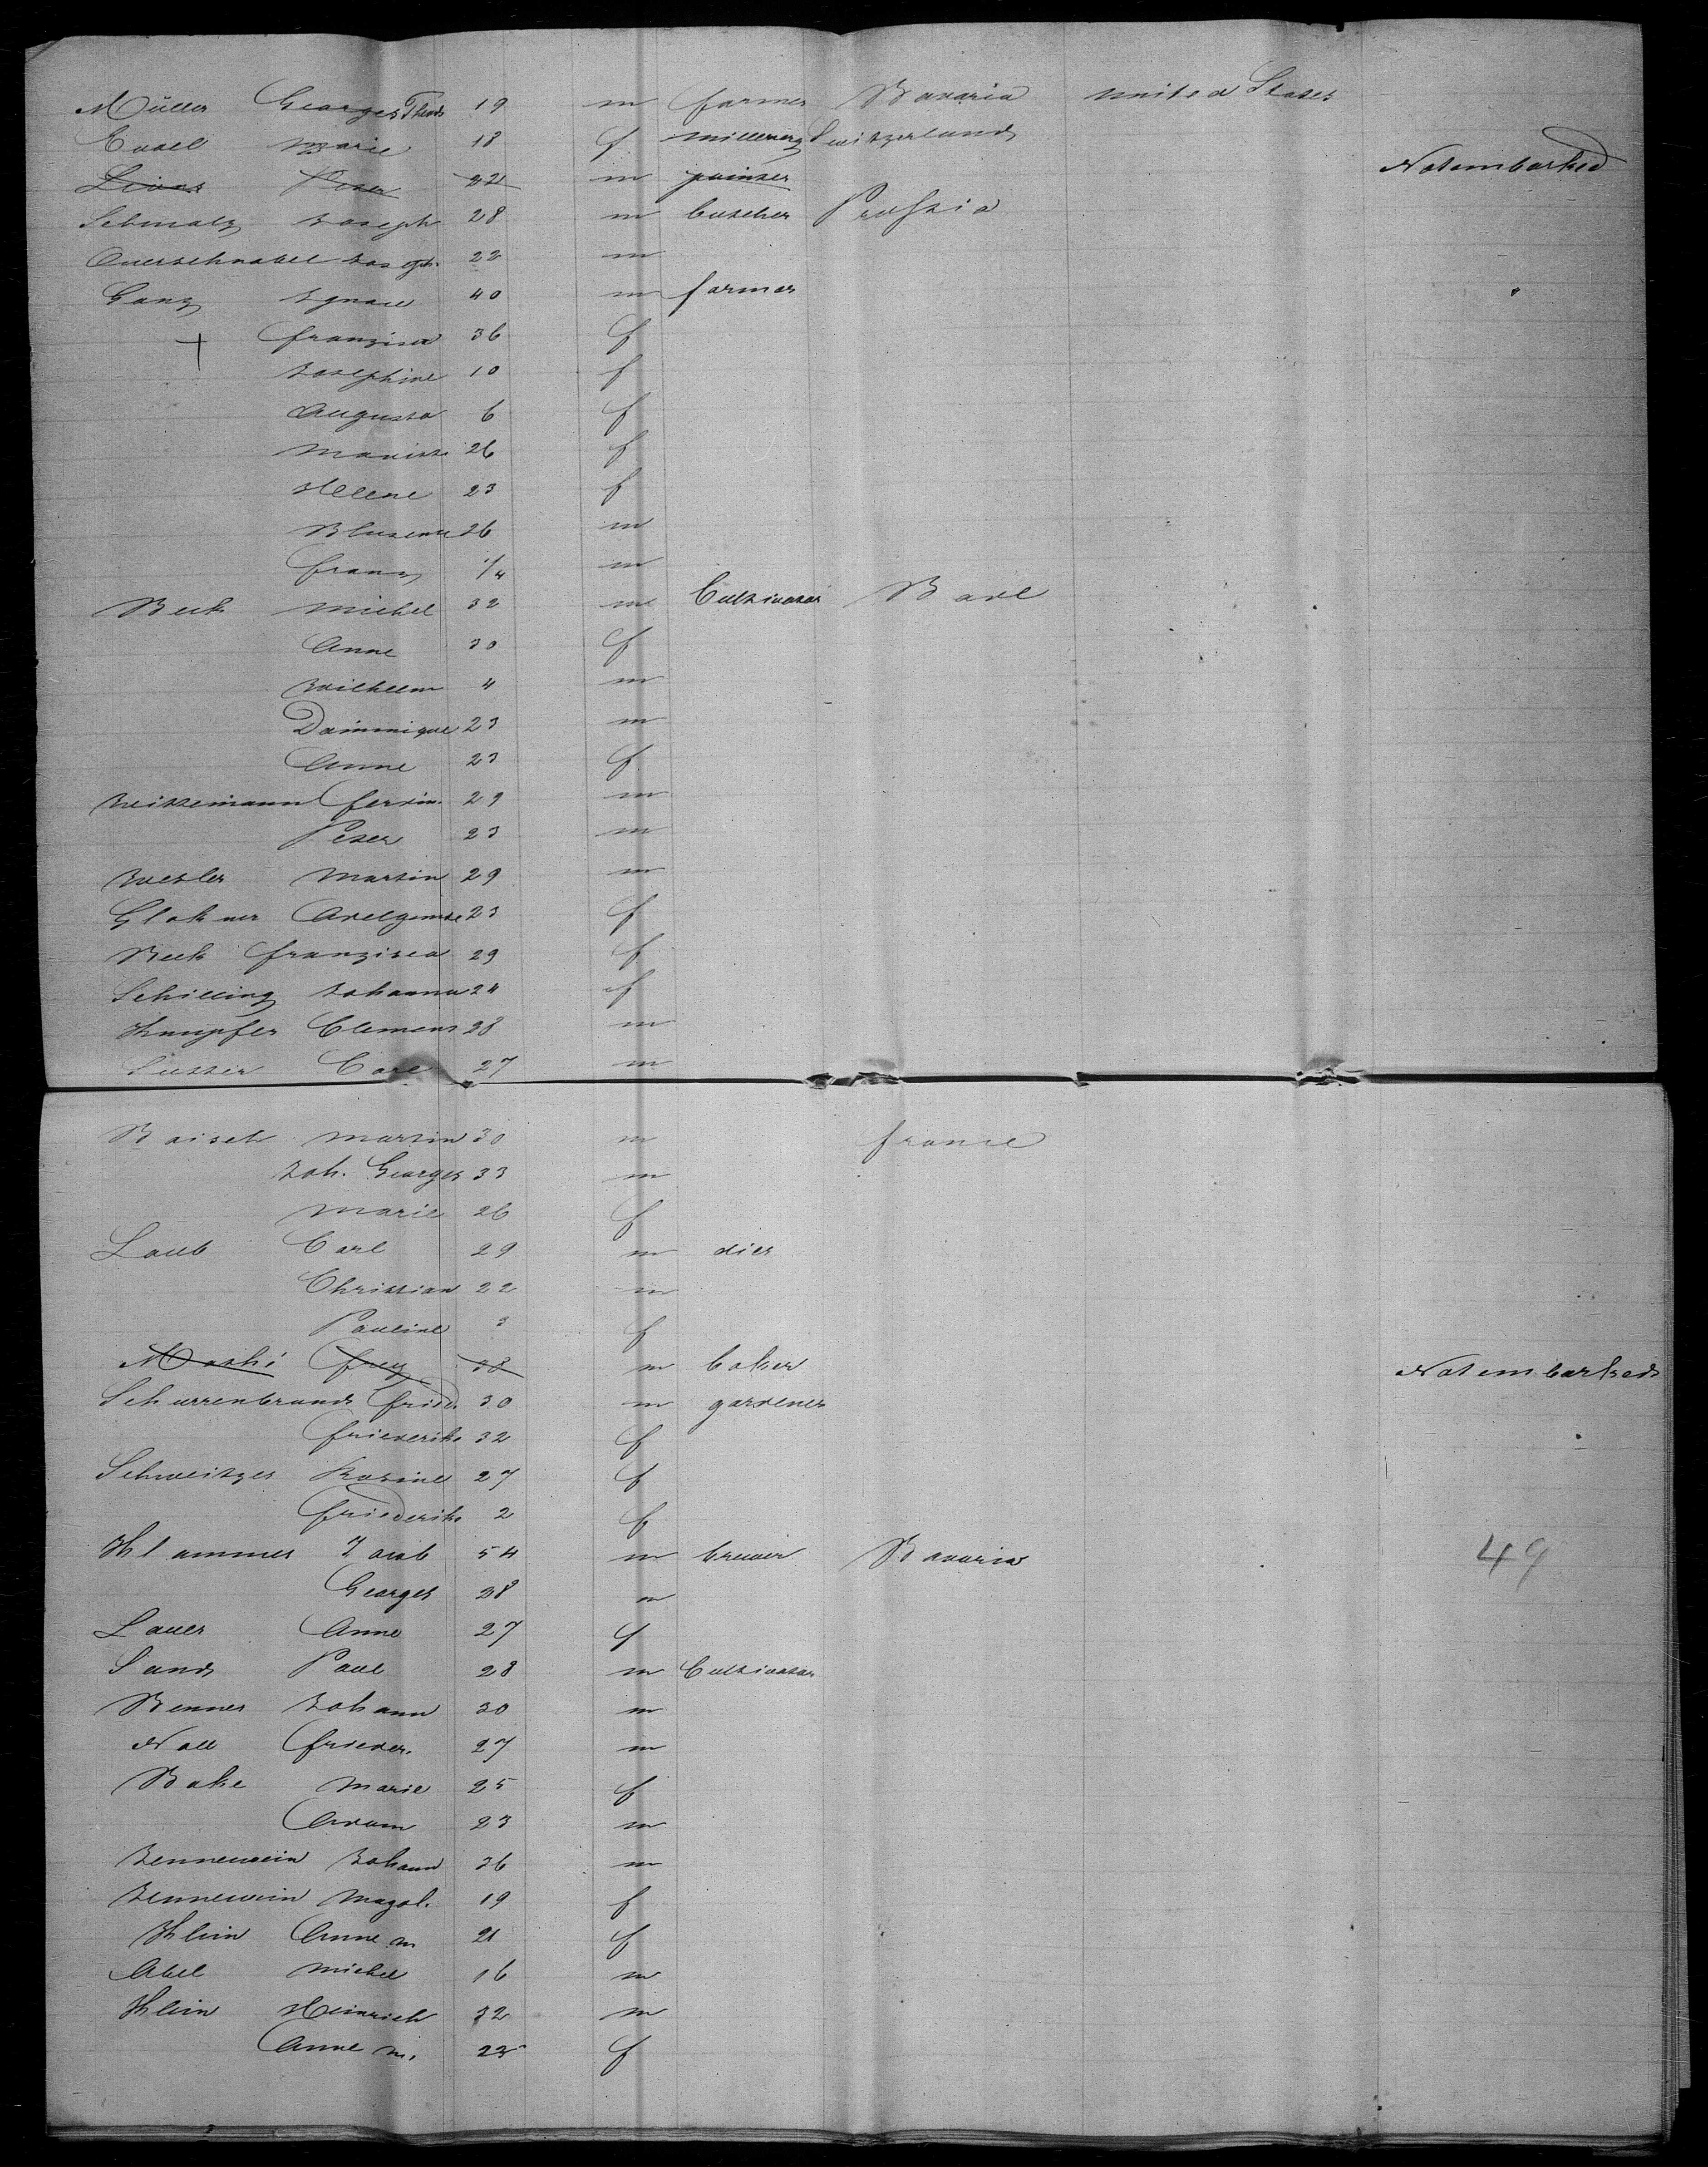 Müller Georges Theod 19 m farmer Bavaria united States
Marie 18 f millenery Switzerland
Peter 22 m painter Not embarked
Schmalz Joseph 28 m butcher Prussia
Ouerschnabel Joseph. 22 m
Ganz Ignace 40 m farmer
+ franzisca 36 f
Josephine 10 f
Augusta 6 f
26 f
Helene 23 f
26 m
franz 1/4 m
Beck Michel 32 m Cultivator Bade
Anne 30 f
Wilhelm 4 m
Dominique 23 m
Anne 23 f
ferdin. 29 m
Peter 23 m
Martin 29 m
Glokner 23 f
Beck franzisca 29 f
Schilling Johanna 24 f
Knupfer Clemens 28 m
Carl 27 m
Baisch Martin 30 m france
Joh. Georges 33 m
Marie 26 f
Laub Carl 29 m dier
Christian 22 m
Pauline 3 f
frey 28 m baker Not embarked
Schurrenbrand fried. 30 m gardener
friederike 32 f
Schweitzer Rosine 27 f
friederike 2 f
Klammer Jacob 54 m brewer Bavaria 49
Georges 28 m
Lauer Anne 27 f
Sand Paul 28 m Cultivator
Renner Johann 30 m
Noll frieder. 27 m
Bake Marie 25 f
Adam 23 m
Jennewein Johann 36 m
Jennewein Magd. 19 f
Klein Anne M 21 f
Abel Michel 16 m
Klein Heinrich 32 m
Anne M. 25 f